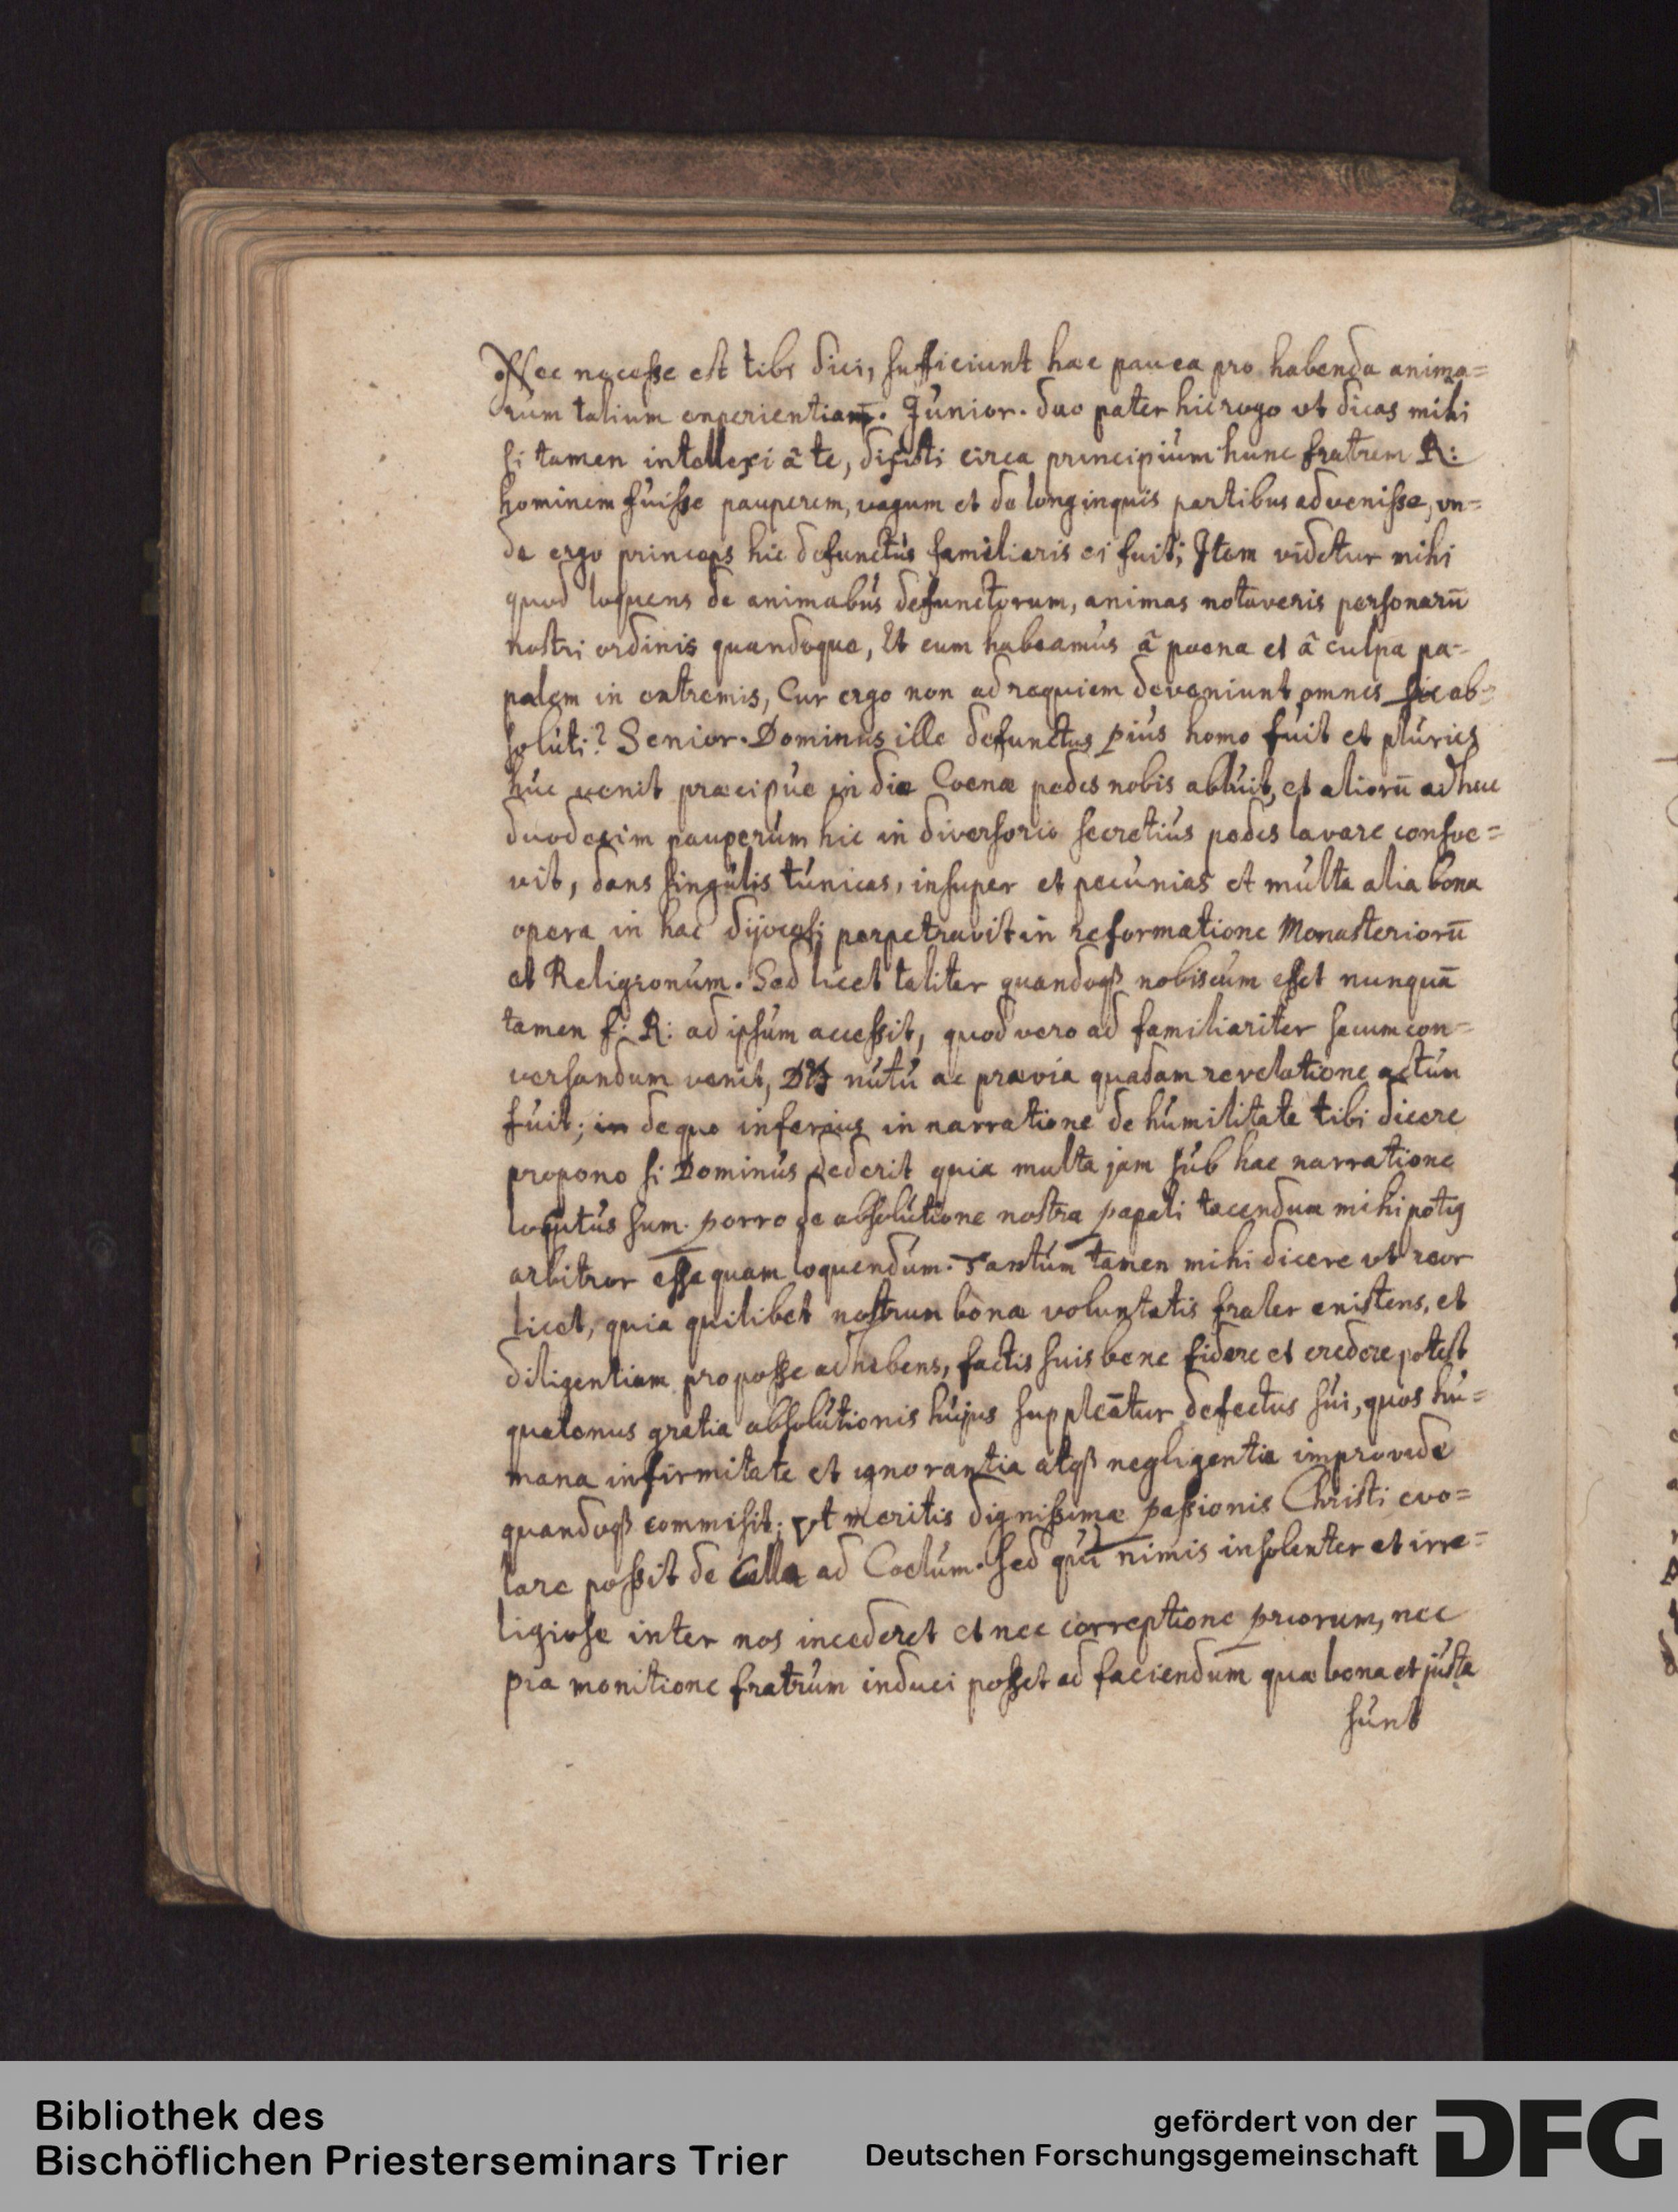 Nec necesse est tibi dici, sufficiunt hæc pauca pro habenda anima=
rum talium experientiam. Junior. duo pater hic rogo vt dicas mihi
si tamen intellexi â te, dixisti circa principium hunc fratrem R:
hominem fuisse pauperem, vagum et de longinquis partibus advenisse, vn=
de ergo princeps hic defunctus familiaris ei fuit; Item videtur mihi
quod loquens de animabus defunctorum, animas notaveris personarū
nostri ordinis quandoque, Et cum habeamus â poena et â culpa pa=
palem in extremis, Cur ergo non ad requiem deveniunt omnes sic ab=
soluti? Senior. Dominus ille defunctus pius homo fuit et pluries
huc venit præcipue in die Coenæ pedes nobis abluit, et aliorū adhuc
duodecim pauperum hic in diversorio secretius pedes lavare consve=
vit, dans singulis tunicas, insuper et pecunias et multa alia bona
opera in hac dijocesi perpetravit in reformatione Monasteriorū
et Religionum. Sed licet taliter quandoqß nobiscum esset nunquā
tamen f: R: ad ipsum accessit, quod vero ad familiariter secum con=
versandum venit, nutu ac prævia quadam revelatione actum
fuit; in de quo inferius in narratione de humilitate tibi dicere
propono si Dominus dederit quia multa jam sub hac narratione
locutus sum. porro de absolutione nostra papali tacendum mihi potiꝰ
arbitror esse quam loquendum. Tantum tamen mihi dicere vt reor
licet, quia quilibet nostrum bonæ voluntatis frater existens, et
diligentiam pro posse adhibens, factis suis bene fidere et credere potest
quatenus gratia absolutionis hujus suppleātur defectus sui, quos hu=
mana infirmitate et ignorantia atqß negligentia improvide
quandoqß commisit; vt meritis dignissimæ passionis Christi evo=
lare possit de Cella ad Coelum. Sed qui nimis insolenter et irre=
ligiose inter nos incederet et nec correptione priorum, nec
pia monitione fratrum induci posset ad faciendum quæ bona et justa
sunt
Bibliothek des
Bischöflichen Priesterseminars Trier
gefördert von der
Deutschen Forschungsgemeinschaft
DFG